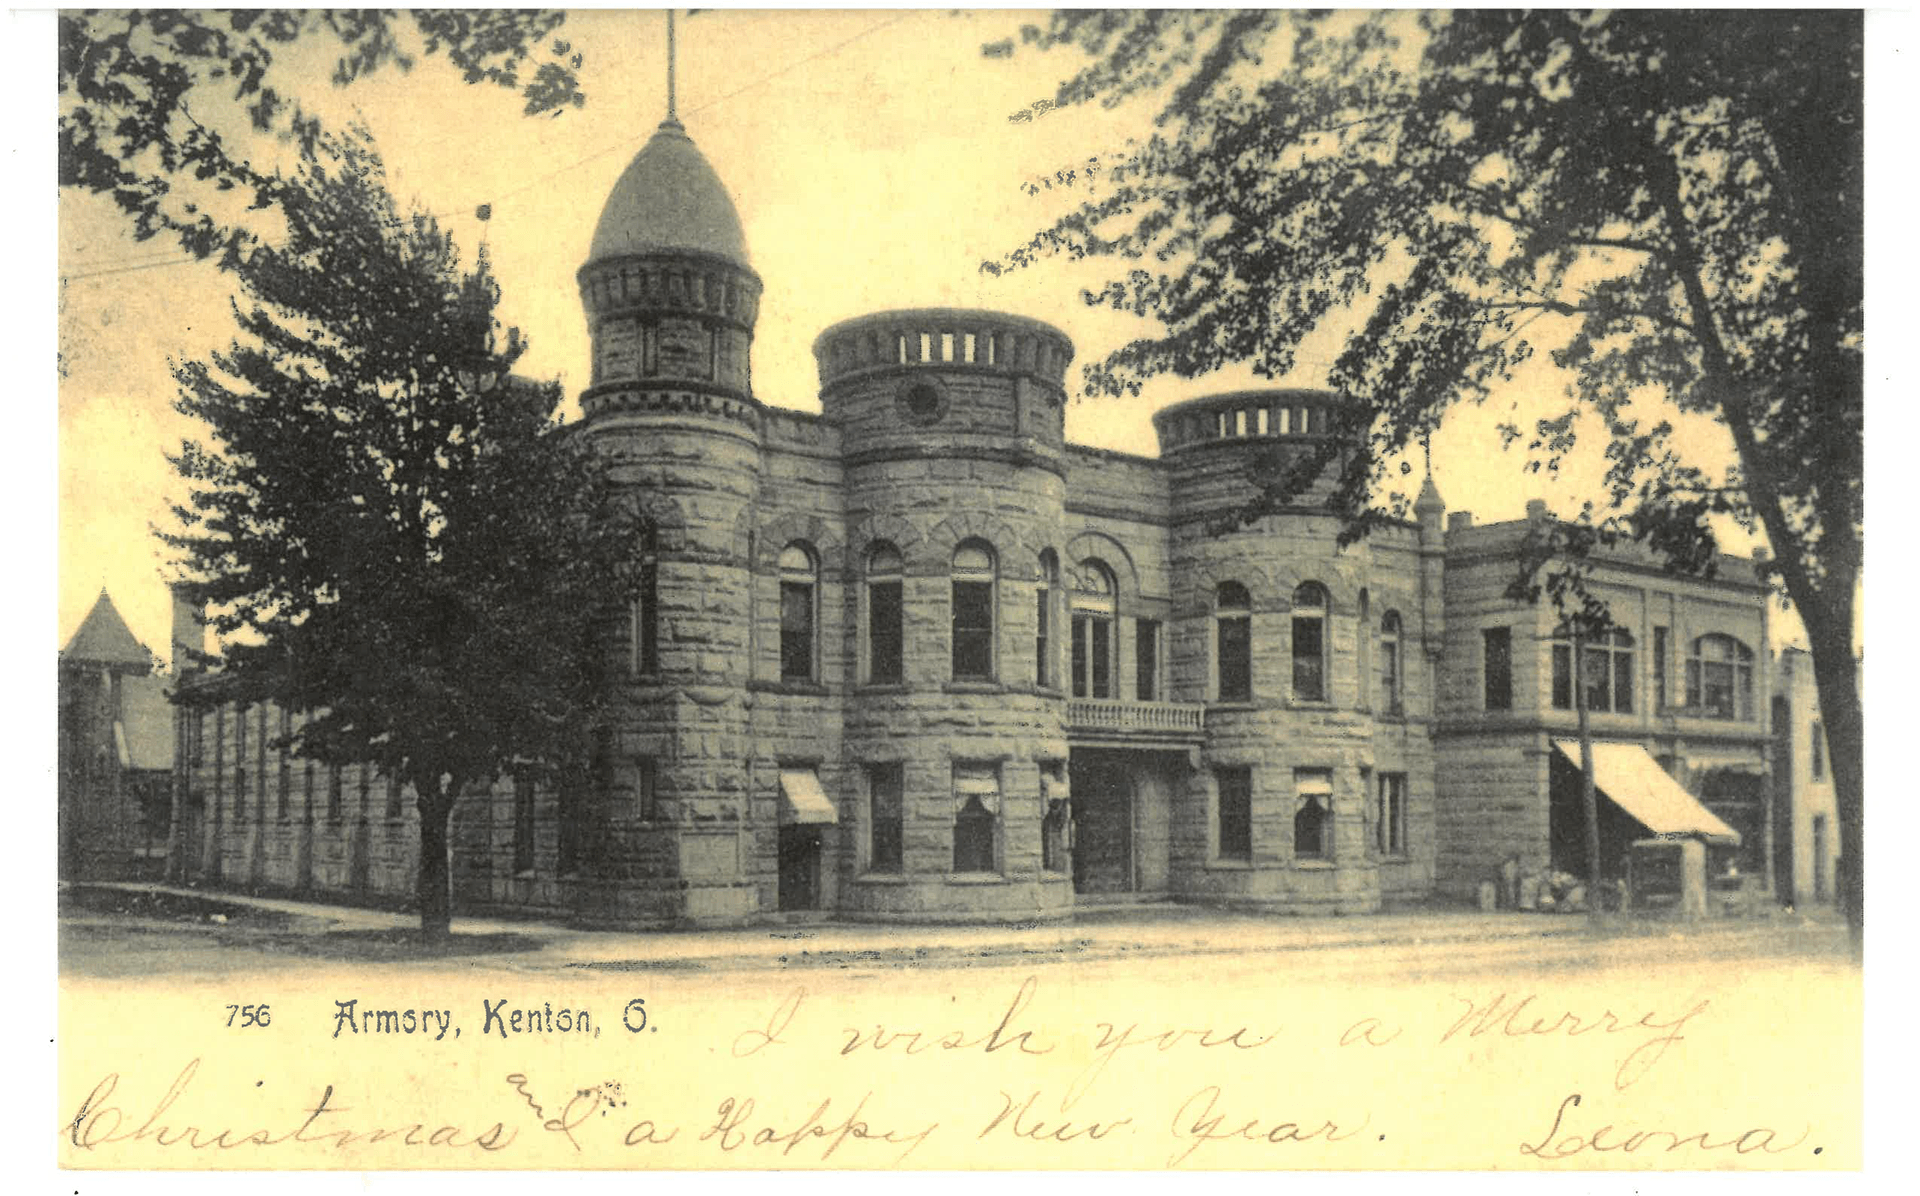 756 Armory, Kenton, O.
I wish you a Merry
Christmas and a Happy New Year. Leona.